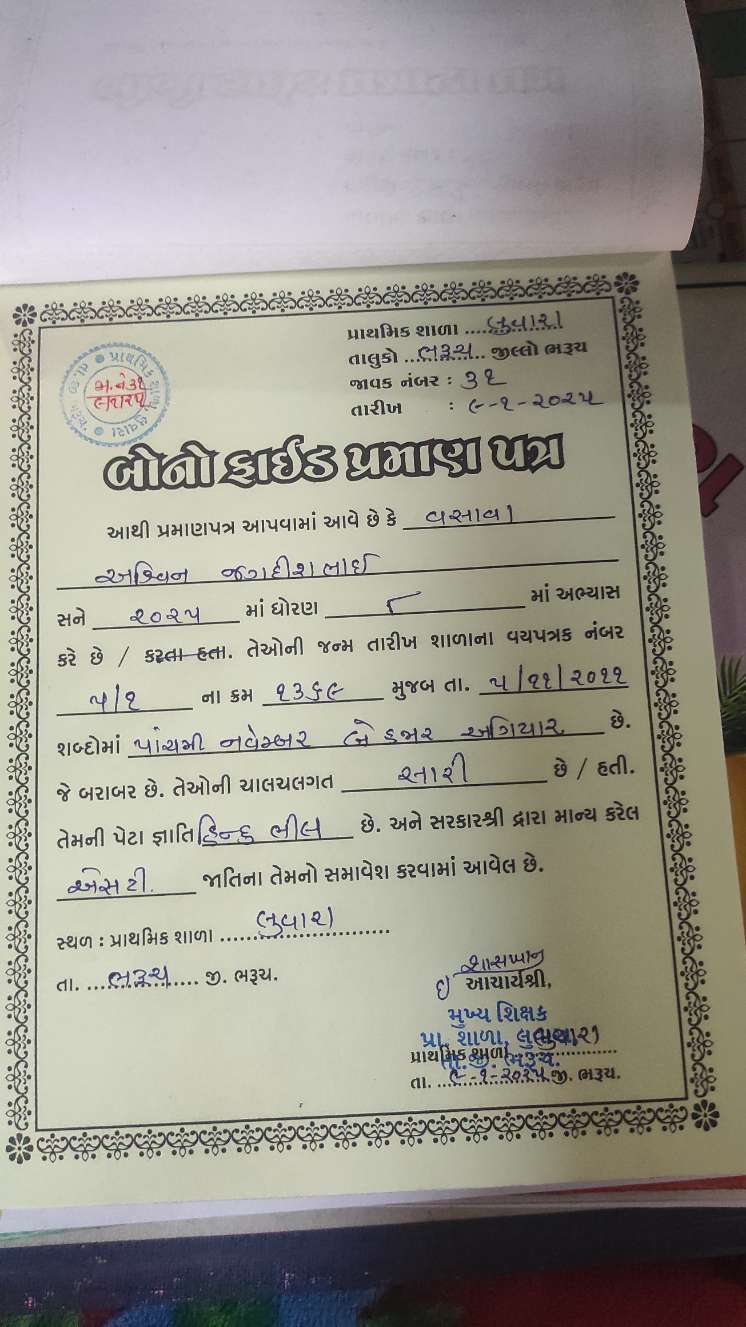 પ્રાથમિક શાળા ....લુવારા
તાલુકો ...ભરૂચ... જીલ્લો ભરૂચ
જાવક નંબર : ૩૧
તારીખ : ૯-૧-૨૦૨૫
પ્રાથમિક શાળા લુવારા
બોનોફાઈડ પ્રમાણ પત્ર
આથી પ્રમાણપત્ર આપવામાં આવે છે કે વસાવા
અશ્વિન જગદીશભાઈ
સને ૨૦૨૫ માં ધોરણ ૮ માં અભ્યાસ
કરે છે / કરતા હતા. તેઓની જન્મ તારીખ શાળાના વયપત્રક નંબર
૫/૧ ના ક્રમ ૧૩૬૯ મુજબ તા. ૫/૧૧/૨૦૧૧
શબ્દોમાં પાંચમી નવેમ્બર બે હજાર અગિયાર છે.
જે બરાબર છે. તેઓની ચાલચલગત સારી છે / હતી.
તેમની પેટા જ્ઞાતિ હિન્દુ ભીલ છે. અને સરકારશ્રી દ્રારા માન્ય કરેલ
એસ ટી. જાતિના તેમનો સમાવેશ કરવામાં આવેલ છે.
સ્થળ : પ્રાથમિક શાળા લુવારા
તા. ...ભરૂચ.... જી. ભરૂચ.
આચાર્યશ્રી,
મુખ્ય શિક્ષક
પ્રા. શાળા, લુવારા
પ્રાથમિક શાળા
તા.જી. ભરૂચ.
તા. ૯-૧-૨૦૨૫ જી. ભરૂચ.